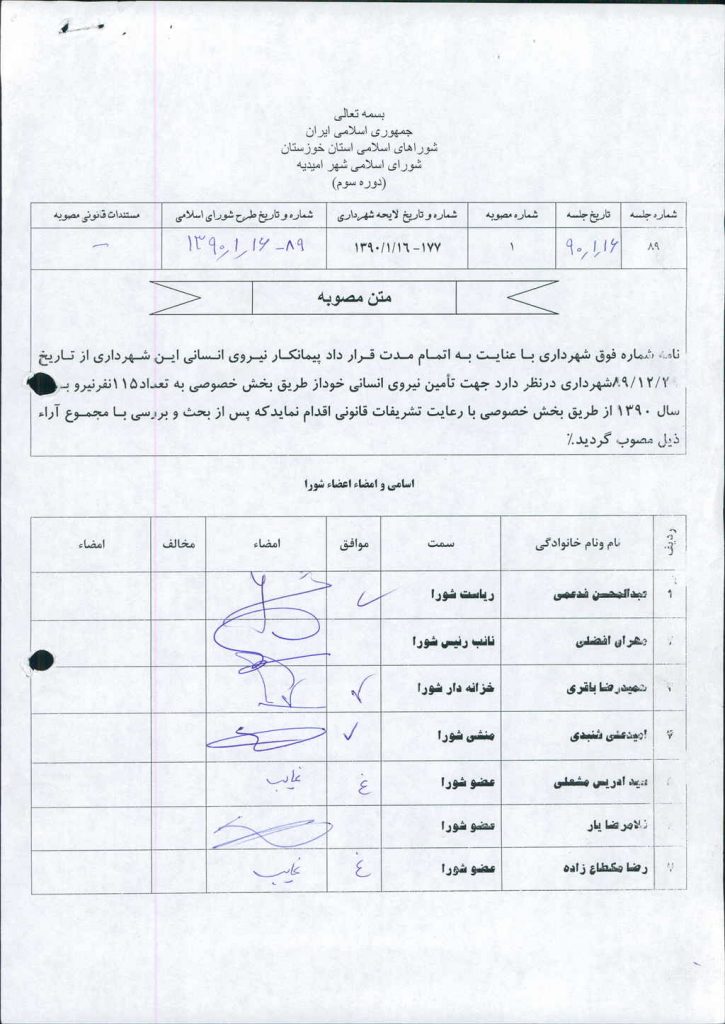 بسمه تعالی
جمهوری اسلامی ایران
شوراهای اسلامی استان خوزستان
شورای اسلامی شهر امیدیه
(دوره سوم)
شماره جلسه تاریخ جلسه شماره مصوبه شماره و تاریخ لایحه شهرداری شماره و تاریخ طرح شورای اسلامی مستندات قانونی مصوبه
۸۹ ۹۰/۱/۱۶ ۱ ۱۷۷- ۱۳۹۰/۱/۱۶ ۸۹- ۱۳۹۰/۱/۱۶ –
متن مصوبه
نامه شماره فوق شهرداری با عنایت به اتمام مدت قرار داد پیمانکار نیروی انسانی این شهرداری از تاریخ
شهرداری درنظر دارد جهت تأمین نیروی انسانی خوداز طریق بخش خصوصی به تعداد۱۱۵نفرنیرو
سال ۱۳۹۰ از طریق بخش خصوصی با رعایت تشریفات قانونی اقدام نمایدکه پس از بحث و بررسی با مجموع آراء
ذیل مصوب گردید.٪
اسامی و امضاء اعضاء شورا
ردیف نام ونام خانوادگی سمت موافق امضاء مخالف امضاء
۱ عبدالمحسن ریاست شورا ✓
مهران افضلی نائب رئیس شورا
حمیدرضا باقری خزانه دار شورا ✓
۴ امیدعلی شنبدی منشی شورا ✓
سید ادریس مشعلی عضو شورا غ غایب
غلامرضا یار عضو شورا
۷ رضا مکطاع زاده عضو شورا غ غایب